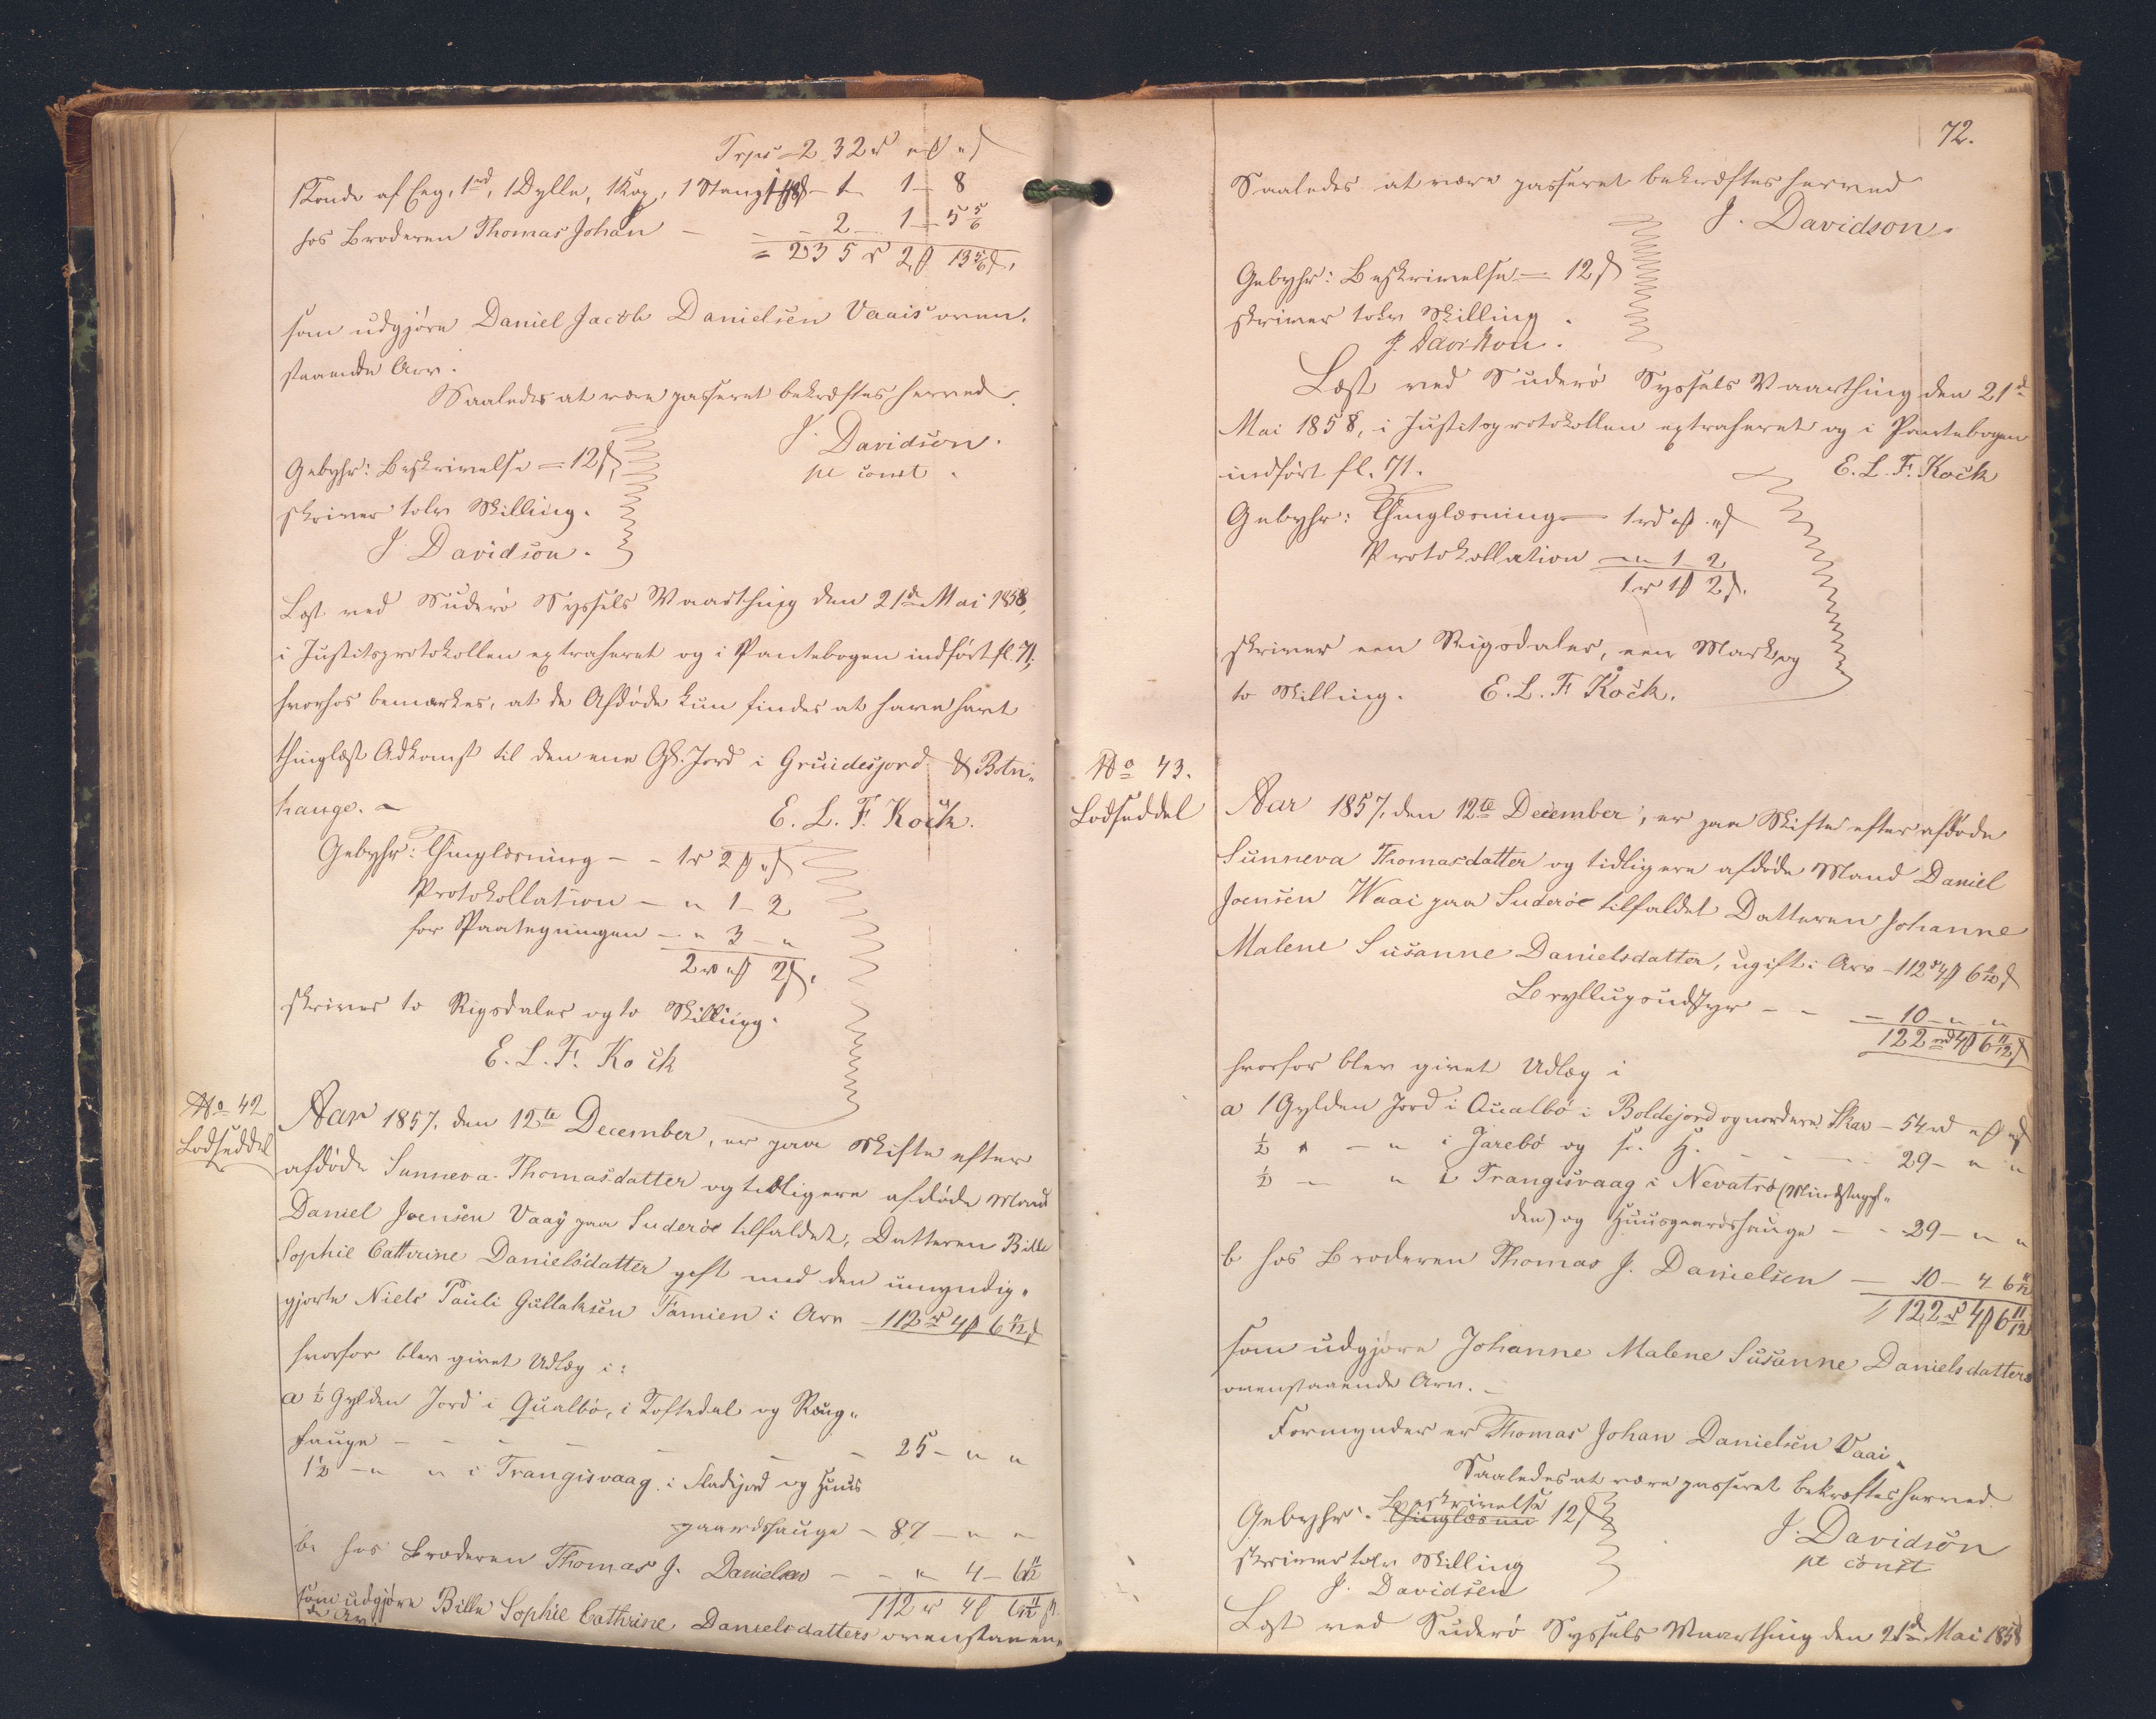 Trps = 232 rd " ß " s
1 Tonde af Eeg, 1 rd, 1 Dylle, 1 Kop, 1 Stang - 1 - 1 - 8
hos Broderen Thomas Johan - - 2 - 1 - 5 5/6
= 235 r 2 ß 13 5/6 s.
som udgjøre Daniel Jacob Danielsen Vaais oven-
staaende Arv.
Saaledes at være passeret bekræftes herved.
J. Davidson.
pt const.
Gebyhr: Beskrivelse = 12 s
skriver tolv Skilling.
J. Davidson.
Læst ved Suderö Syssels Vaarthing den 21de Mai 1858,
i Justitsprotokollen extraheret og i Pantebogen indført fl. 71,
hvorhos bemærkes, at de Afdøde kun findes at have havt
thinglæst Adkomst til den ene Gl. Jord i Gruidesjord & Botni-
hauge. -
E. L. F. Kock.
Gebyhr: Thinglæsning - - 1 r 2 ß " s
Protokollation - " 1 - 2
for Paategningen - " 3 - "
2 r " ß 2 s.
skriver to Rigsdaler og to Skilling.
E. L. F. Kock
No 42
Lodseddel
Aar 1857, den 12te December, er paa Skifte efter
afdøde Sunneva Thomasdatter og tidligere afdøde Mand
Daniel Joensen Vaaij paa Suderöe tilfaldet, Datteren Bille
Sophie Cathrine Danielsdatter gift med den umyndig-
gjorte Niels Pauli Gullaksen Famien i Arv - 112 rd 4 ß 6 11/12 s
hvorfor blev givet Udlæg i:
a 1/2 Gylden Jord i Qualbö, i Toftedal og Roug-
hauge - - - - - - 25 - " "
1 1/2 - " " i Trangisvaag i Fladjord og Huus
gaardshauge - 87 - " "
b. hos Broderen Thomas J. Danielsen - - " - 4 - 6 11/12
112 r 4 ß 6 11/12 s
som udgjøre Bille Sophie Cathrine Danielsdatters ovenstaaen-
de Arv.
72.
Saaledes at være passeret bekræftes herved
J. Davidson.
Gebyhr: Beskrivelse = 12 s
skriver tolv Skilling.
J. Davidson.
Læst ved Suderö Syssels Vaarthing den 21de
Mai 1858, i Justitsprotokollen extraheret og i Pantebogen
indført fl. 71.
E. L. F. Kock
Gebyhr: Thinglæsning - 1 rd " ß " s
Protokollation - " 1 - 2
1 r 1 ß 2 s.
skriver een Rigsdaler, een Mark og
to Skilling. E. L. F. Kock.
No 43.
Lodseddel
Aar 1857, den 12te December, er paa Skifte efter afdøde
Sunneva Thomasdatter og tidligere afdøde Mand Daniel
Joensen Waai paa Suderöe tilfaldet Datteren Johanne
Malene Susanne Danielsdatter, ugift i Arv - 112 r 4 ß 6 11/12 s
Bryllupsudstyr - - - 10 - " - "
122 rd 4 ß 6 11/12 s
hvorfor blev givet Udlæg i
a 1 Gylden Jord i Qualbö i Boldejord og nordere Skar - 54 rd " ß " s
1/2 " - " i Jarebö og fr. H. - - - 29 - " "
1/2 - " i Trangisvaag i Nevatrö (Mindstagyl-
den) og Huusgaardshauge - - 29 - " "
b hos Broderen Thomas J. Danielsen - 10 - 4 6 11/12
122 rd 4 ß 6 11/12
som udgjøre Johanne Malene Susanne Danielsdatters
ovenstaaende Arv. -
Formynder er Thomas Johan Danielsen Vaai.
Saaledes at være passeret bekræftes herved.
Gebyhr: Beskrivelse 12 s
J. Davidson
pt const
skriver tolv Skilling
J. Davidsen
Læst ved Suderö Syssels Vaarthing den 21de Mai 1858